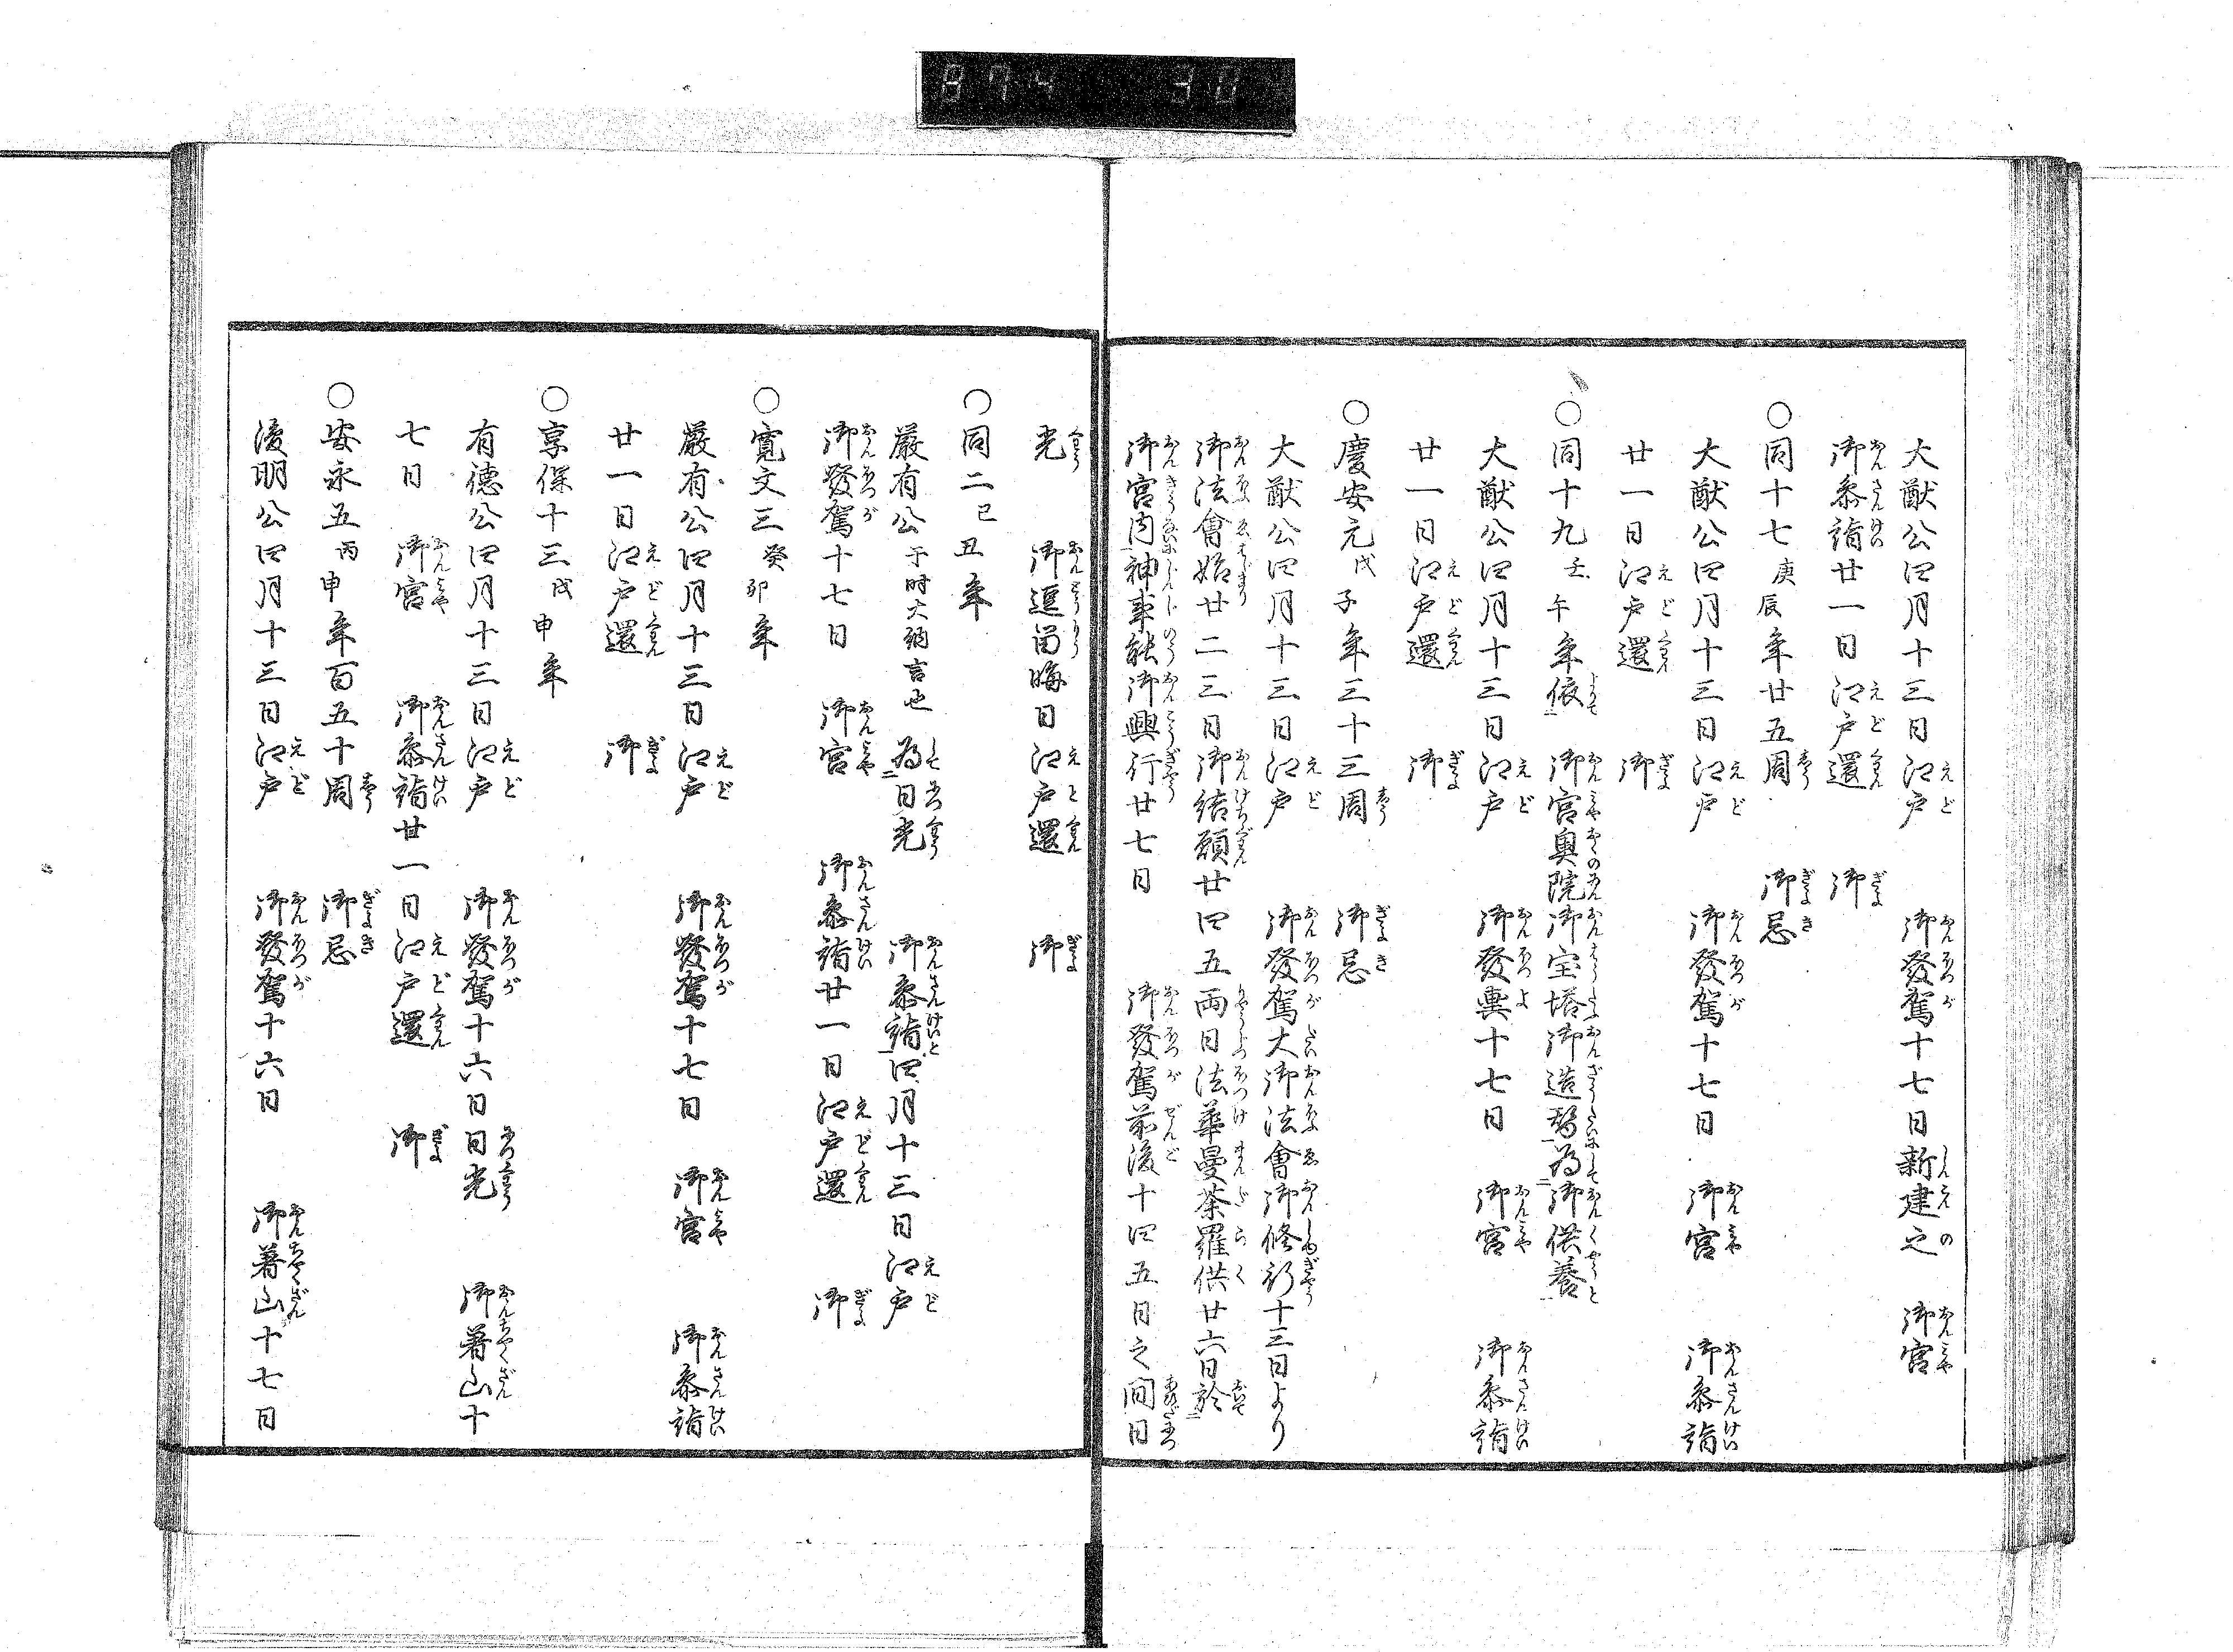 874 30
大猷公四月十三日江戸 御發駕十七日新建之 御宮
御參詣廿一日江戸還 御
○同十七庚辰年廿五周 御忌
大猷公四月十三日江戸 御發駕十七日 御宮 御參詣
廿一日江戸還 御
○同十九壬午年依 御宮奥院御宝塔御造替為御供養
大猷公四月十三日江戸 御發輿十七日 御宮 御參詣
廿一日江戸還 御
○慶安元戊子年三十三周 御忌
大猷公四月十三日江戸 御發駕大御法會御修行十三日より
御法會始廿二三日御結願廿四五両日法華曼荼羅供廿六日於
御宮内神事能御興行廿七日 御發駕前後十四五日之間日
光 御逗留晦日江戸還 御
○同二己丑年
嚴有公于時大納言也為日光 御參詣四月十三日江戸
御發駕十七日 御宮 御參詣廿一日江戸還 御
○寛文三癸卯年
嚴有公四月十三日江戸 御發駕十七日 御宮 御參詣
廿一日江戸還 御
○享保十三戊申年
有徳公四月十三日江戸 御發駕十六日日光 御著山十
七日 御宮 御參詣廿一日江戸還 御
○安永五丙申年百五十周 御忌
浚明公四月十三日江戸 御發駕十六日 御著山十七日